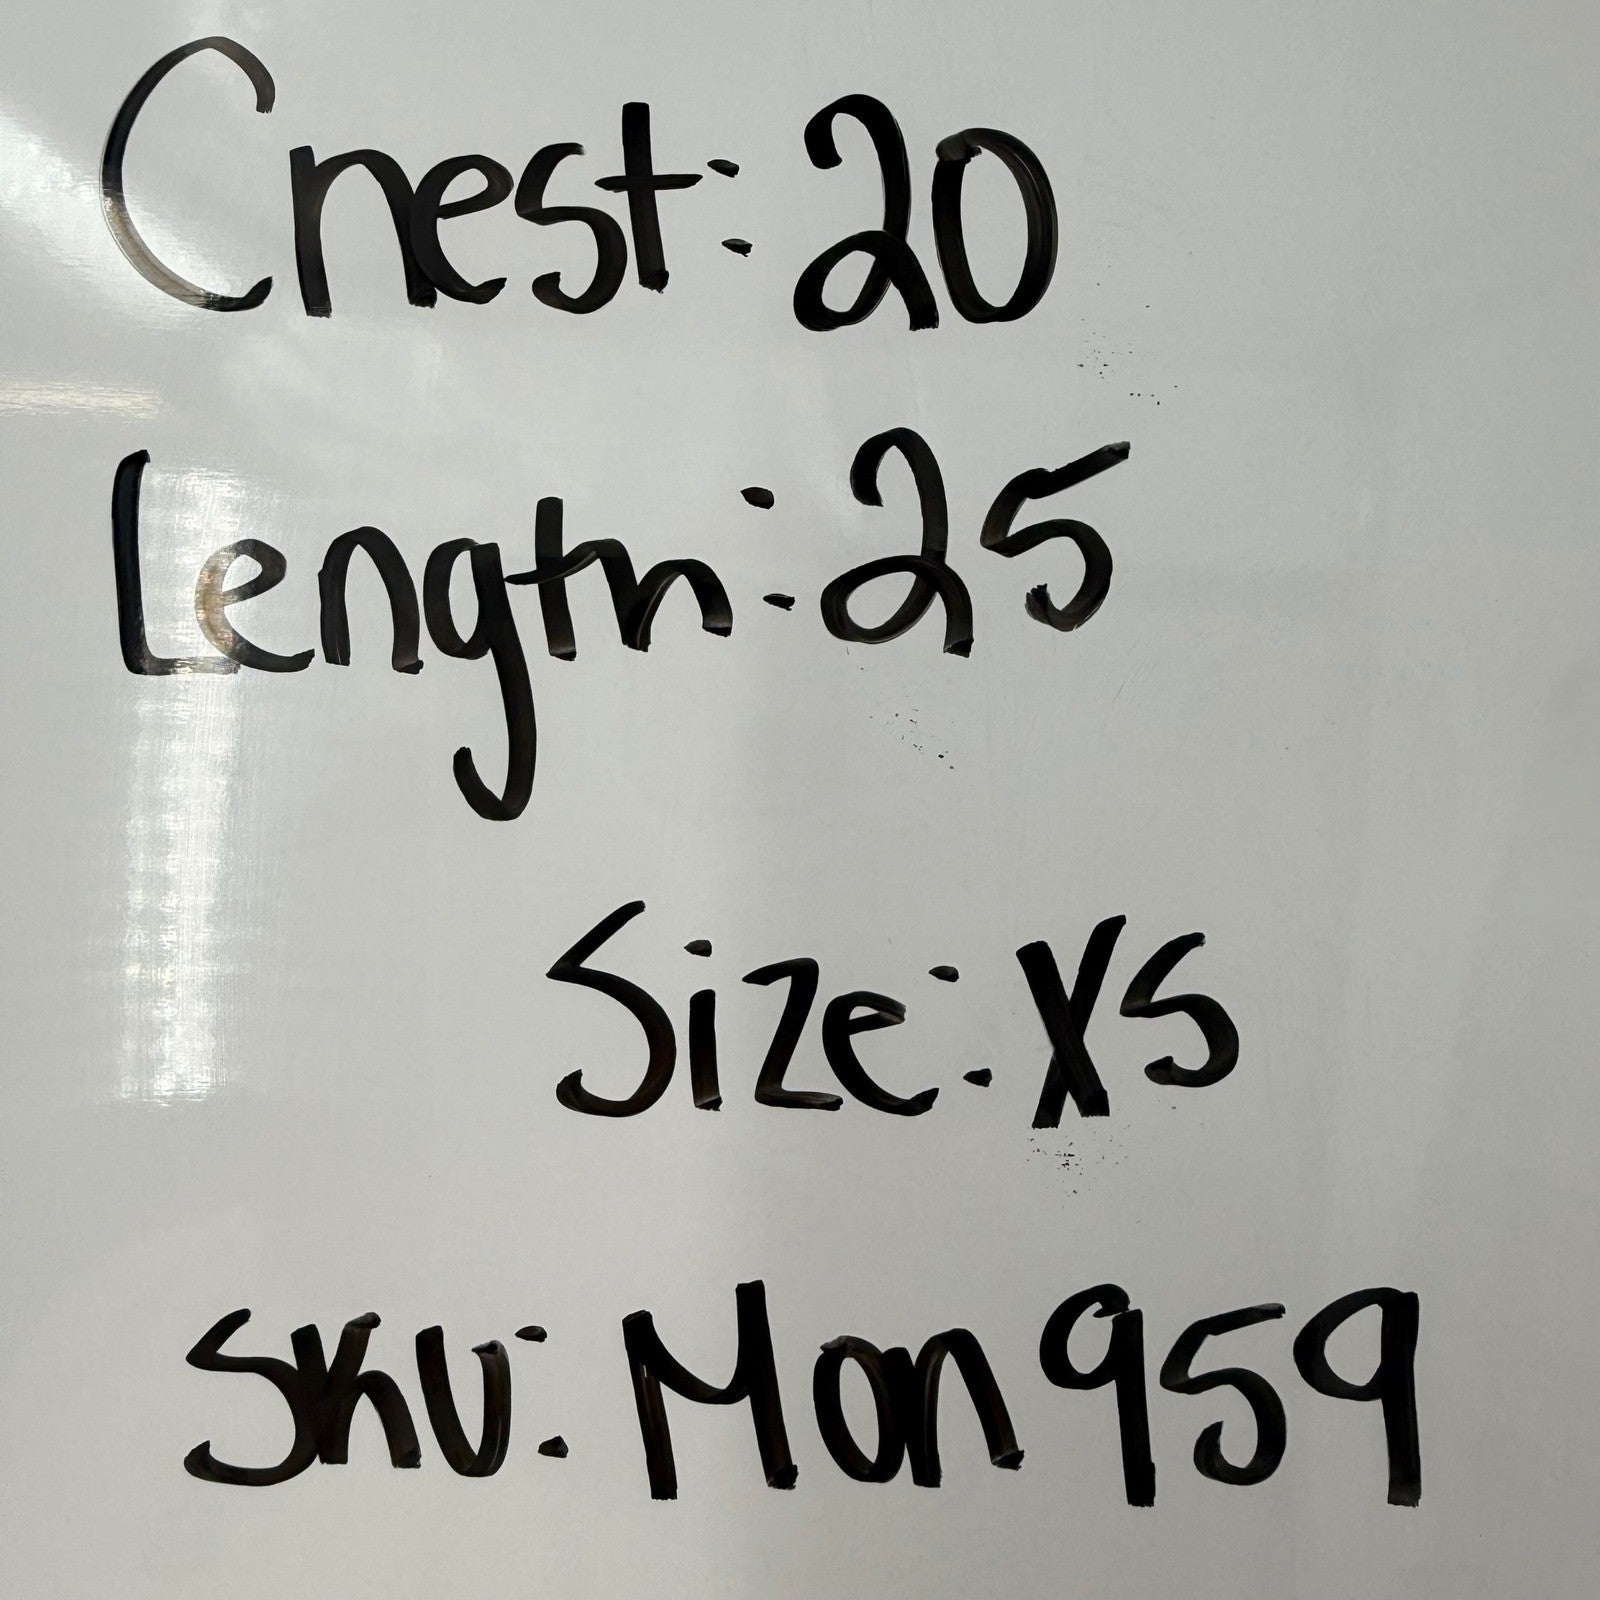 Chest: 20
Length: 25
Size: XS
SKU: Mon959